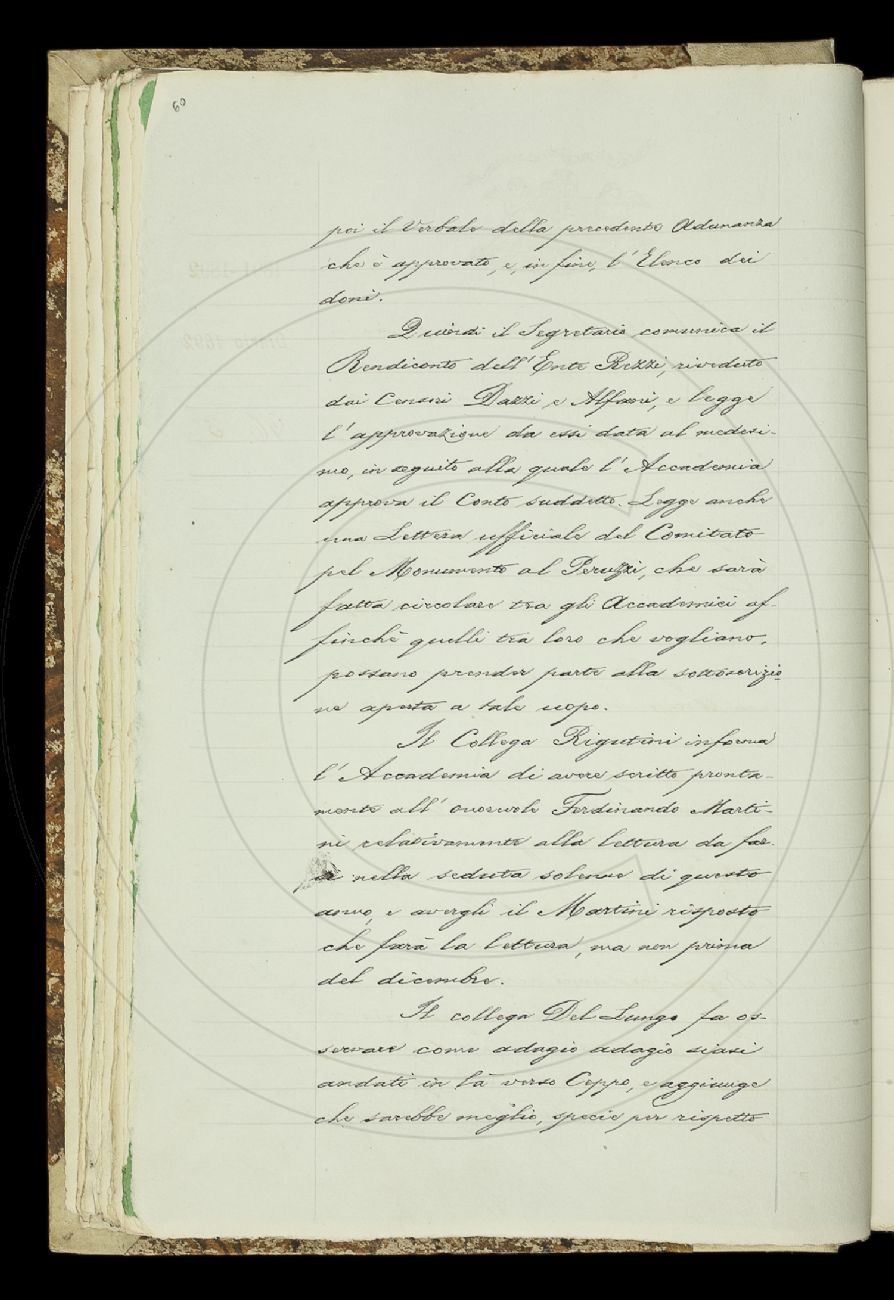 60
poi il Verbale della precedente Adunanza
che è approvato, e, in fine, l'Elenco dei
doni.
Quindi il Segretario comunica il
Rendiconto dell'Ente Rezzi, riveduto
dai Censori Dazzi e Alfani, e legge
l'approvazione da essi data al medesi-
mo, in seguito alla quale l'Accademia
approva il Conto suddetto. Legge anche
una Lettera ufficiale del Comitato
pel Monumento al Peruzzi, che sarà
fatta circolare tra gli Accademici af-
finchè quelli tra loro che vogliano,
possano prender parte alla sottoscrizio-
ne aperta a tale uopo.
Il Collega Rigutini informa
l'Accademia di avere scritto pronta-
mente all'onorevole Ferdinando Marti-
ni relativamente alla lettura da far-
si nella seduta solenne di questo
anno, e avergli il Martini risposto
che farà la lettura, ma non prima
del dicembre.
Il collega Del Lungo fa os-
servare come adagio adagio siasi
andati in là verso Ceppo, e aggiunge
che sarebbe meglio, specie per rispetto